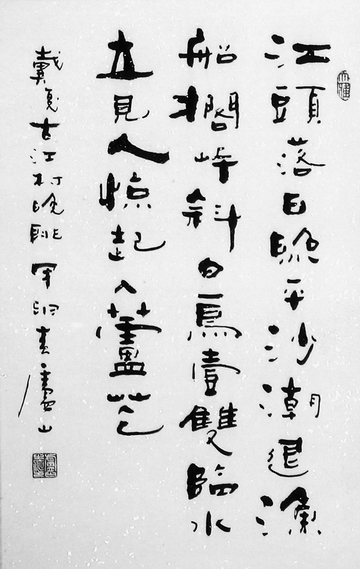 江頭落日照平沙潮退漁
船擱岸斜白鳥壹雙臨水
立見人惊起入蘆花
戴复古江村晚眺 廬山